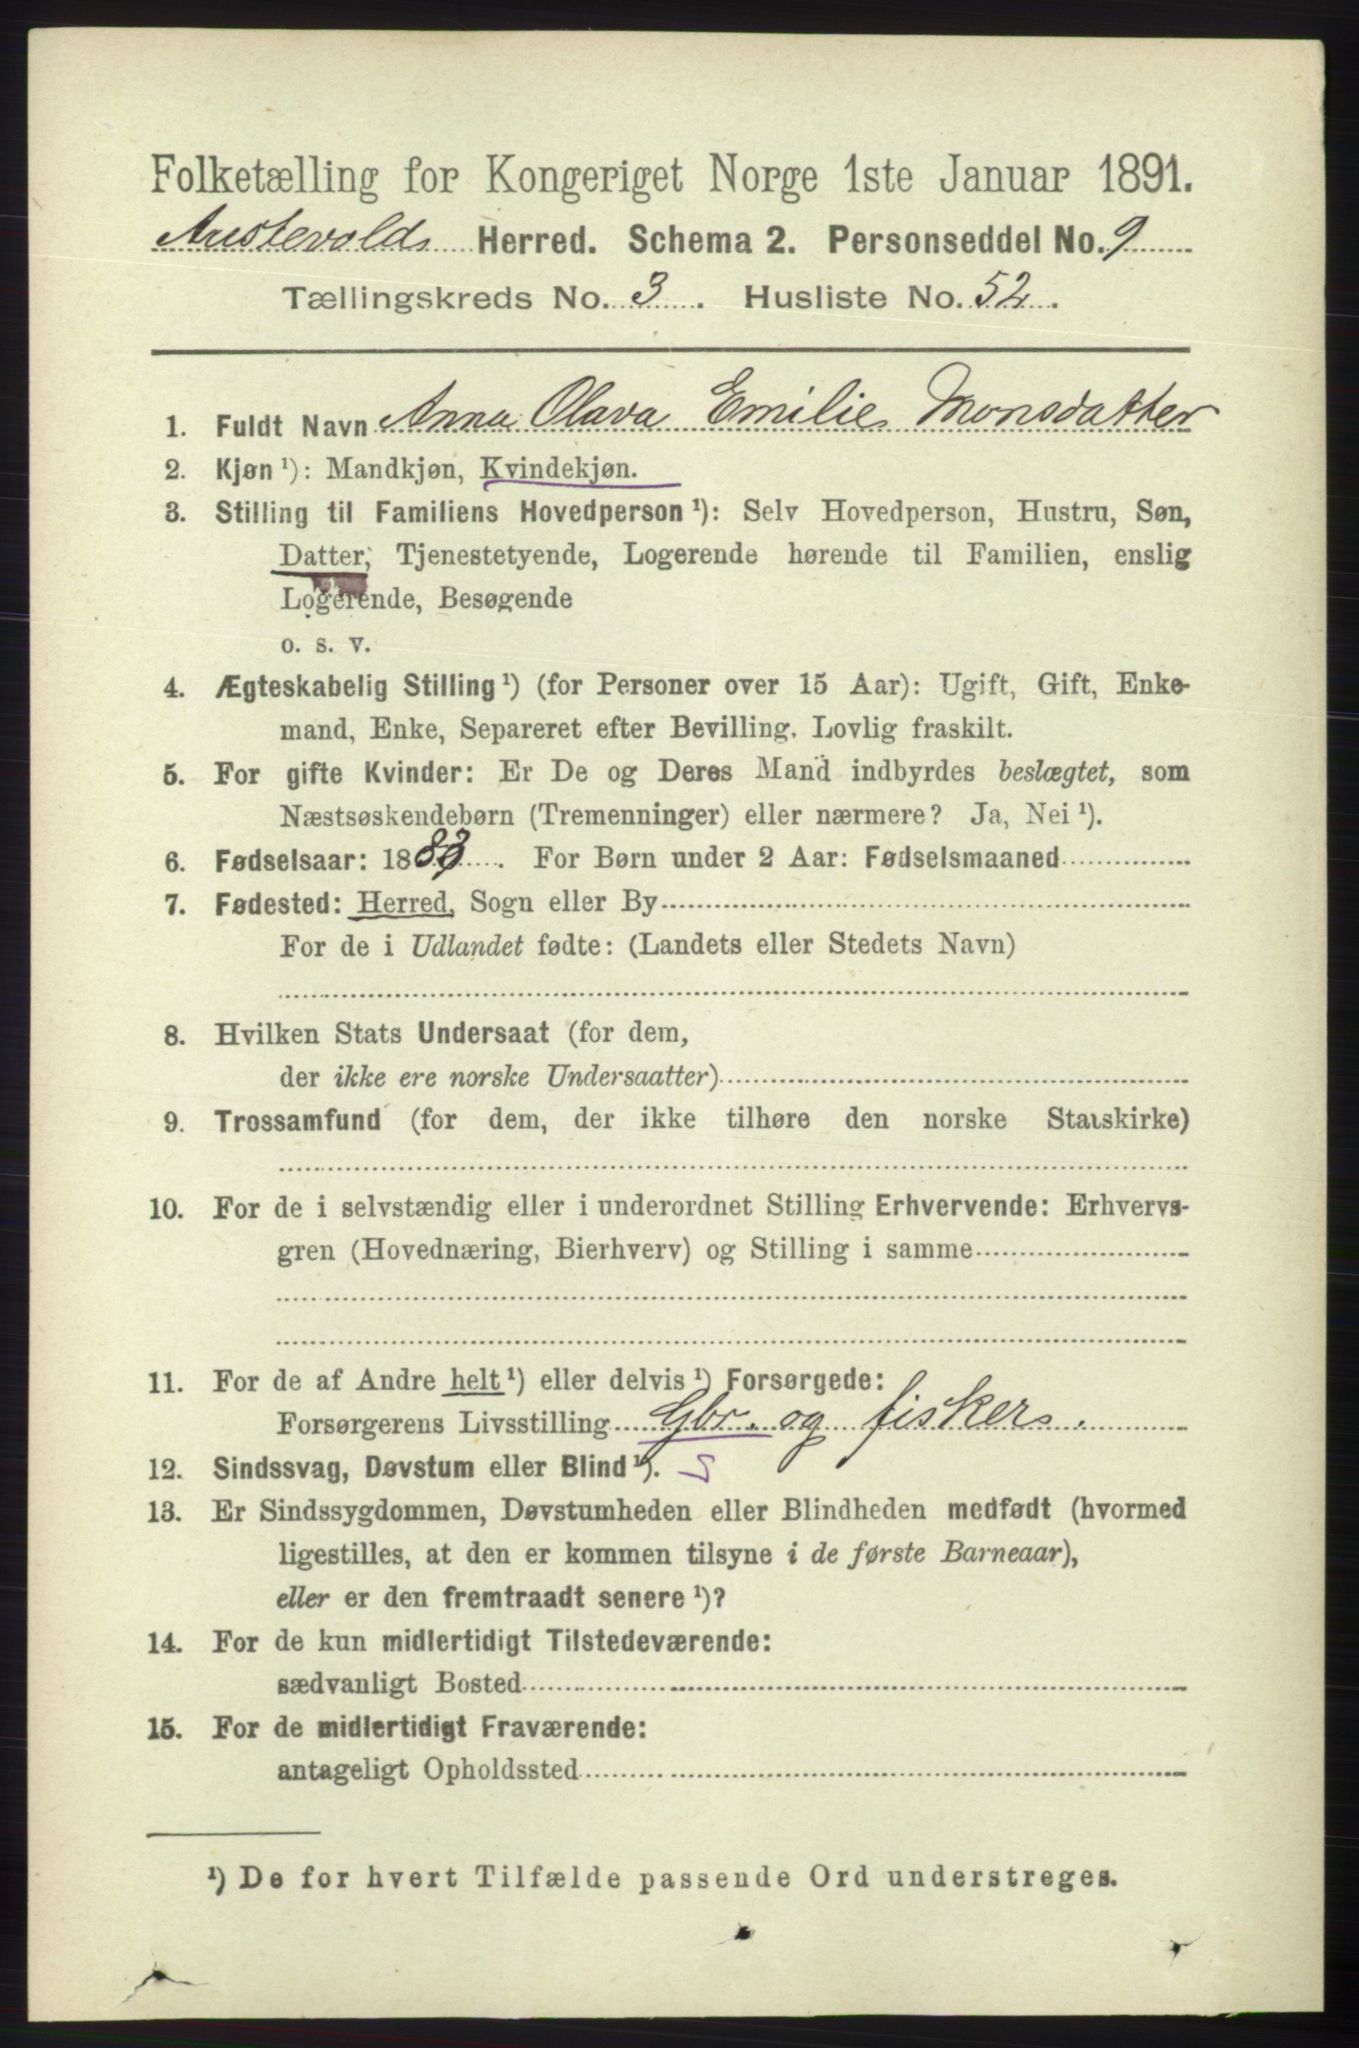 Folketælling for Kongeriget Norge 1ste Januar 1891.
Austevolds Herred. Schema 2. Personseddel No. 9
Tællingskreds No. 3. Husliste No. 52.
1. Fuldt Navn Anna Olava Emilie Monsdatter
2. Kjøn ¹): Mandkjøn, Kvindekjøn.
3. Stilling til Familiens Hovedperson ¹): Selv Hovedperson, Hustru, Søn,
Datter, Tjenestetyende, Logerende hørende til Familien, enslig
Logerende, Besøgende
o. s. v.
4. Ægteskabelig Stilling ¹) (for Personer over 15 Aar): Ugift, Gift, Enke-
mand, Enke, Separeret efter Bevilling. Lovlig fraskilt.
5. For gifte Kvinder: Er De og Deres Mand indbyrdes beslægtet, som
Næstsøskendebørn (Tremenninger) eller nærmere? Ja, Nei ¹).
6. Fødselsaar: 1883. For Børn under 2 Aar: Fødselsmaaned
7. Fødested: Herred, Sogn eller By
For de i Udlandet fødte: (Landets eller Stedets Navn)
8. Hvilken Stats Undersaat (for dem,
der ikke ere norske Undersaatter)
9. Trossamfund (for dem, der ikke tilhøre den norske Statskirke)
10. For de i selvstændig eller i underordnet Stilling Erhvervende: Erhvervs-
gren (Hovednæring, Bierhverv) og Stilling i samme
11. For de af Andre helt ¹) eller delvis ¹) Forsørgede:
Forsørgerens Livsstilling Gbr. og fisker.
12. Sindssvag, Døvstum eller Blind ¹). S
13. Er Sindssygdommen, Døvstumheden eller Blindheden medfødt (hvormed
ligestilles, at den er kommen tilsyne i de første Barneaar),
eller er den fremtraadt senere ¹)?
14. For de kun midlertidigt Tilstedeværende:
sædvanligt Bosted
15. For de midlertidigt Fraværende:
antageligt Opholdssted
¹) De for hvert Tilfælde passende Ord understreges.